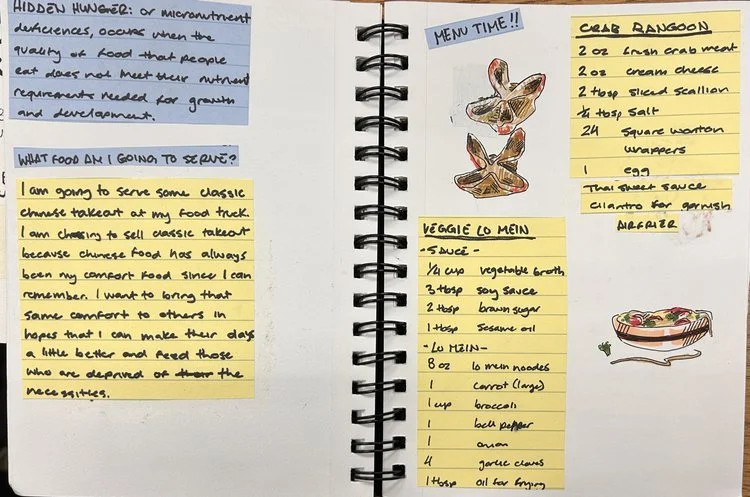 HIDDEN HUNGER: or micronutrient
deficiences, occurs when the
quality of food that people
eat does not meet their nutrient
requirements needed for growth
and development.
WHAT FOOD AM I GOING TO SERVE?
I am going to serve some classic
chinese takeout at my food truck.
I am chosing to sell classic takeout
because chinese food has always
been my comfort food since I can
remember. I want to bring that
same comfort to others in
hopes that I can make their days
a little better and feed those
who are deprived of their the
necessities.
MENU TIME!!
CRAB RANGOON
2 oz fresh crab meat
2 oz cream cheese
2 tbsp sliced scallion
1/4 tbsp salt
24 square wonton
wrappers
1 egg
Thai sweet sauce
cilantro for garnish
AIRFRIER
VEGGIE LO MEIN
-SAUCE-
1/4 cup vegetable broth
3 tbsp soy sauce
2 tbsp brown sugar
1 tbsp sesame oil
-LO MEIN-
8 oz lo mein noodes
1 carrot (large)
1 cup broccoli
1 bell pepper
1 onion
4 garlic cloves
1 tbsp oil for frying